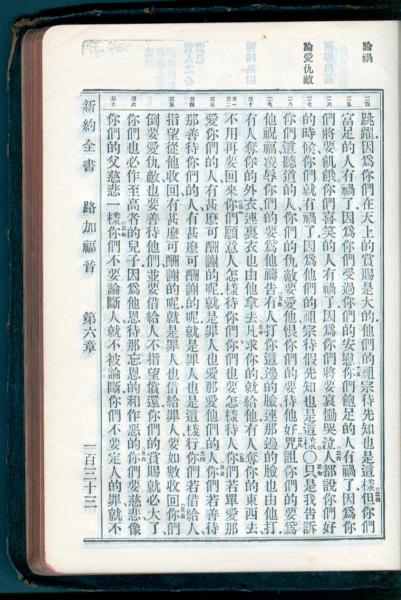 論禍
論愛仇敵
跳躍因爲你們在天上的賞賜是大的他們的祖宗待先知也是這樣但你們
富足的人有禍了因爲你們受過你們的安慰你們飽足的人有禍了因爲你
們將要飢餓你們喜笑的人有禍了因爲你們將要哀慟哭泣人都說你們好
的時候你們就有禍了因爲他們的祖宗待假先知也是這樣〇只是我告訴
你們這聽道的人你們的仇敵要愛他恨你們的要待他好咒詛你們的要爲
他祝福凌辱你們的要爲他禱告有人打你這邊的臉連那邊的臉也由他打
有人奪你的外衣連裏衣也由他拿去凡求你的就給他有人奪你的東西去
不用再要回來你們願意人怎樣待你們你們也要怎樣待人你們若單愛那
愛你們的人有甚麽可酬謝的呢就是罪人也愛那愛他們的人你們若善待
那善待你們的人有甚麽可酬謝的呢就是罪人也是這樣行你們若借給人
指望從他收回有甚麽可酬謝的呢就是罪人也借給罪人要如數收回你們
倒要愛仇敵也要善待他們並要借給人不指望償還你們的賞賜就必大了
你們也必作至高者的兒子因爲他恩待那忘恩的和作惡的你們要慈悲像
你們的父慈悲一樣你們不要論斷人就不被論斷你們不要定人的罪就不
新約全書　路加福音　第六章　一百三十三